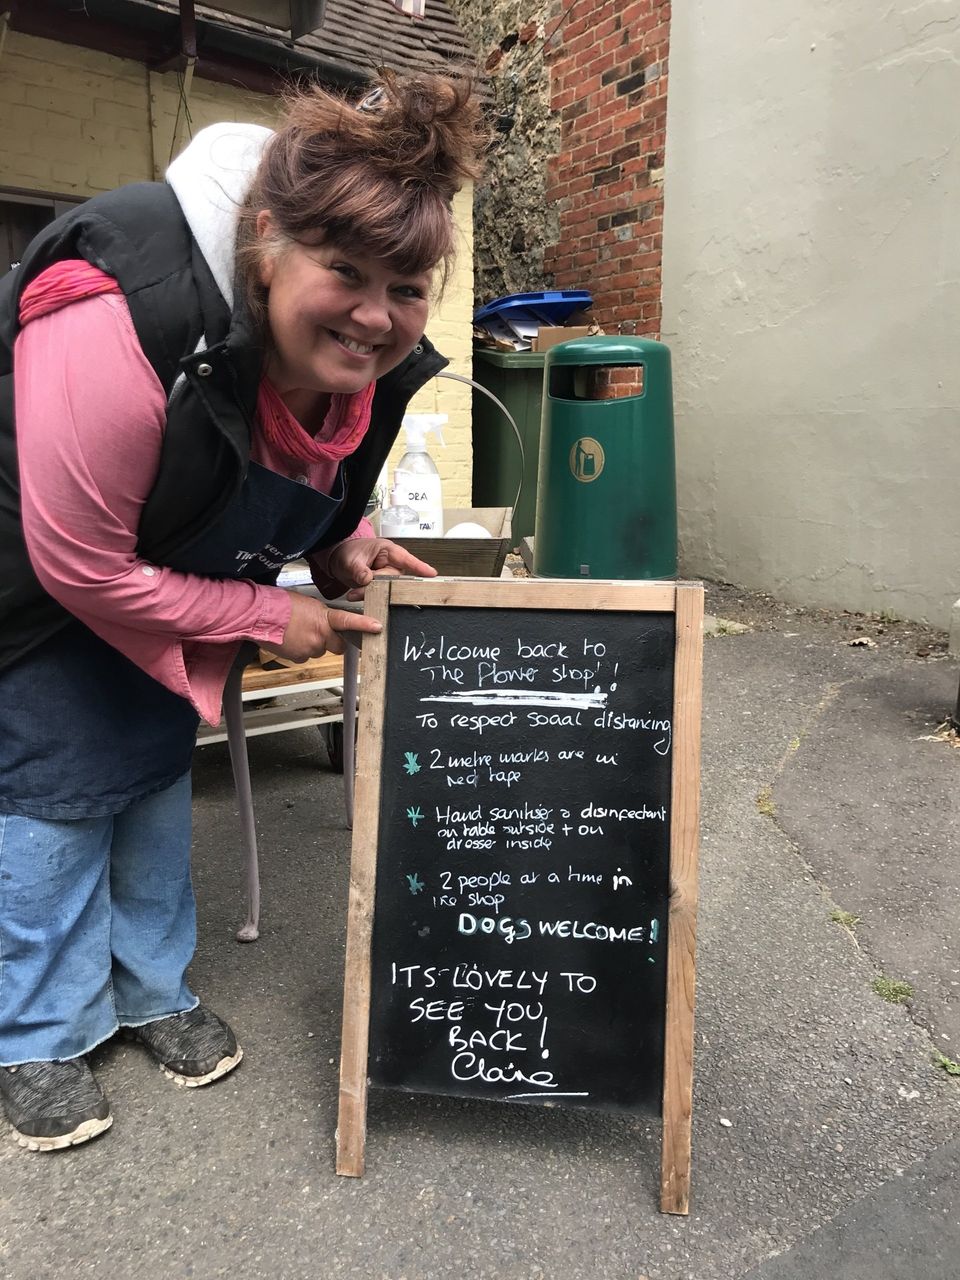 Welcome back to
The flower shop!!
To respect social distancing
* 2 metre marks are in
red tape
* Hand sanitiser & disinfectant
on table outside + on
dresser inside
* 2 people at a time in
the shop
DOGS WELCOME!
ITS LOVELY TO
SEE YOU
BACK!
Claire